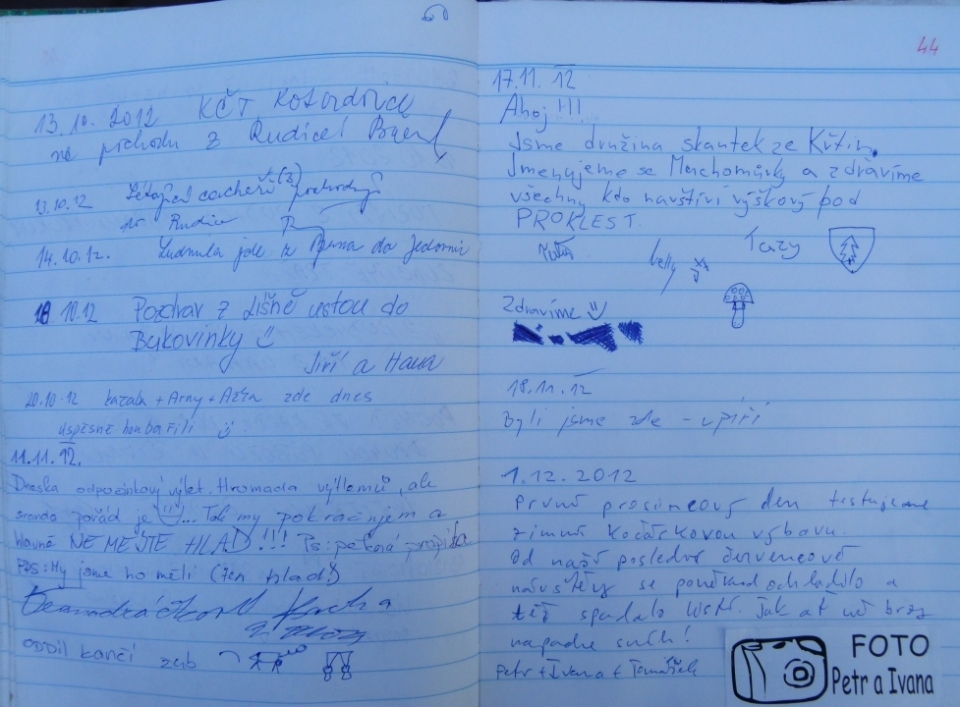 13.10. 2012 KČT
na pochodu z Rudice
13.10.12 Létající
Rudice
14.10.12. Ludmila jde z Brna do Jedovnic
18 10.12 Pozdrav z Líšně cestou do
Bukovinky
Jiří a Hana
20.10.12 + Arny + zde dnes
úspěšně houbařili
11.11.12.
Dneska odpočinkový výlet. Hromada výtlemů, ale
sranda pořád je ... Tak my pokračujem a
hlavně NEMĚJTE HLAD!!! Ps:
PPS: My jsme ho měli (ten hlad!)
oddíl kančí zub
44
17.11. 12
Ahoj !!!
Jsme družina skautek ze Křtin.
Jmenujeme se Muchomůrky a zdravíme
všechny kdo navštíví výškový bod
PROKLEST.
Terzy
Zdravíme
18.11. 12
Byli jsme zde - upíři
1.12. 2012
První prosincový den testujeme
zimní kočárkovou výbavu.
Od naší poslední červencové
návštěvy se poněkud ochladilo a
též spadalo listí. Tak ať už brzy
napadne sníh!
Petr + Ivana + Tomášek
FOTO
Petr a Ivana